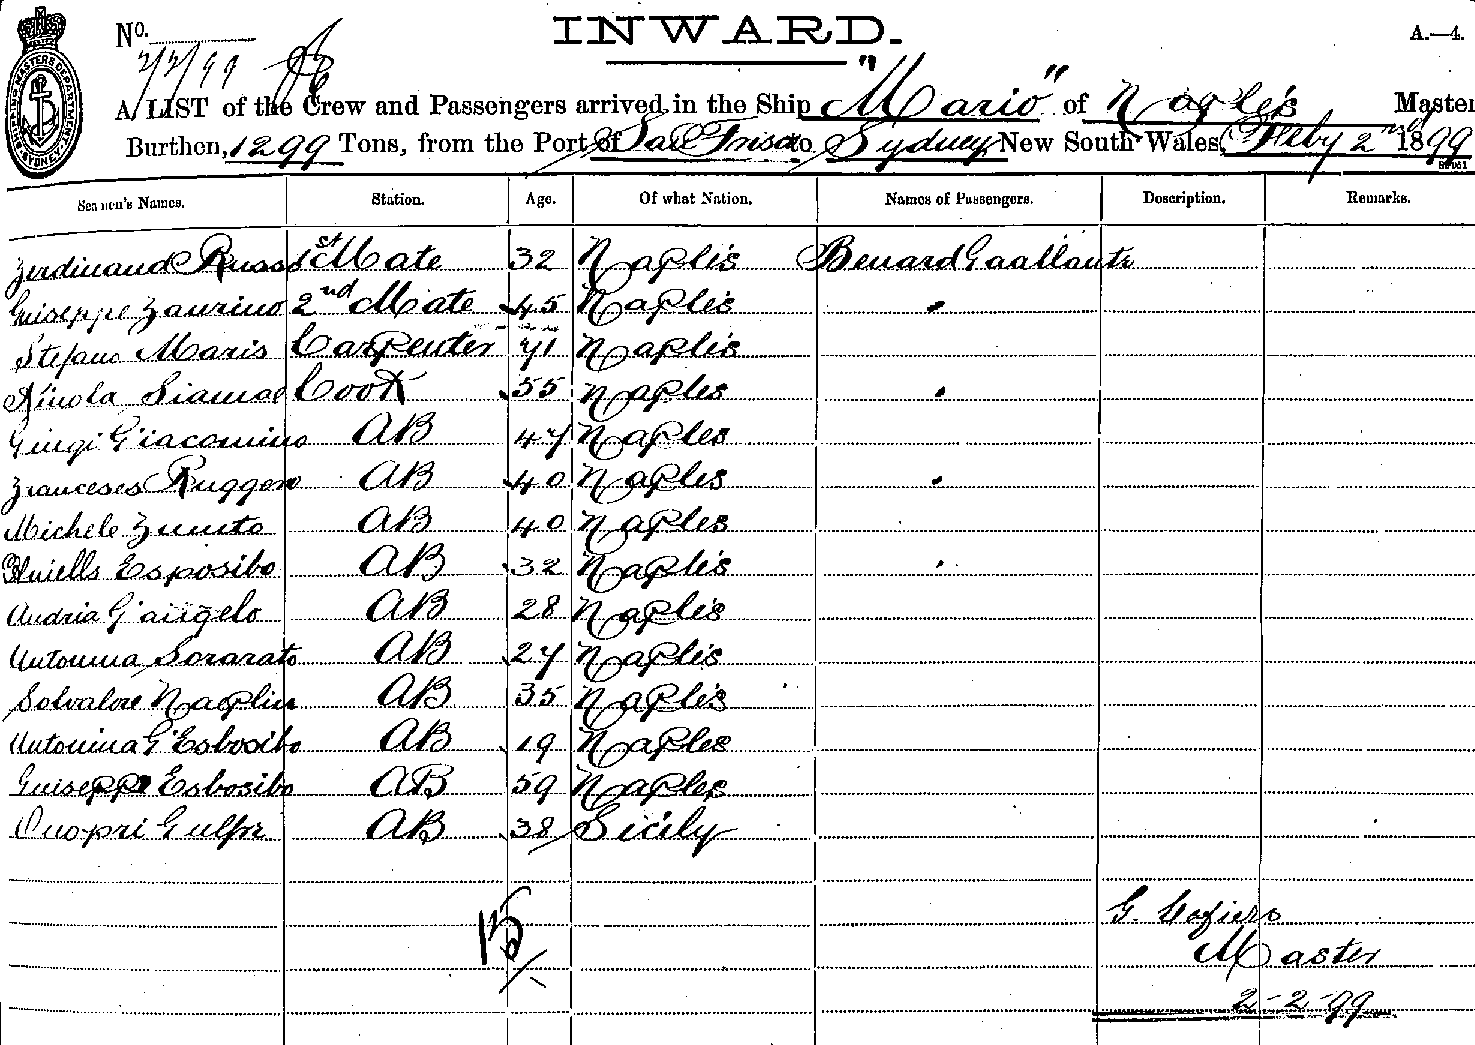 INWARD.
No.
2/2/99
A.—4.
A LIST of the Crew and Passengers arrived in the Ship "Mario" of Naples Master
Burthen, 1299 Tons, from the Port of San Frisco to Sydney New South Wales, Feby 2nd 1899
Seamen's Names. Station. Age. Of what Nation. Names of Passengers. Description. Remarks.
Ferdinand Russo 1st Mate 32 Naples Benard Gaallante
Guiseppe Zaurino 2nd Mate 45 Naples
Stefano Maris Carpenter 41 Naples
Nicola Siamae Cook 55 Naples
Guigi Giacomino AB 47 Naples
Franceses Ruggero AB 40 Naples
Michele Zunito AB 40 Naples
Esposibo AB 32 Naples
Andria G'angelo AB 28 Naples
Antonina Sorarato AB 27 Naples
Solvalore Naplin AB 35 Naples
Antonina G'Esbosibo AB 19 Naples
Guiseppe Esbosibo AB 59 Naples
Onopri Gulfri AB 38 Sicily
15
G. Cafiero
Master
2-2-99